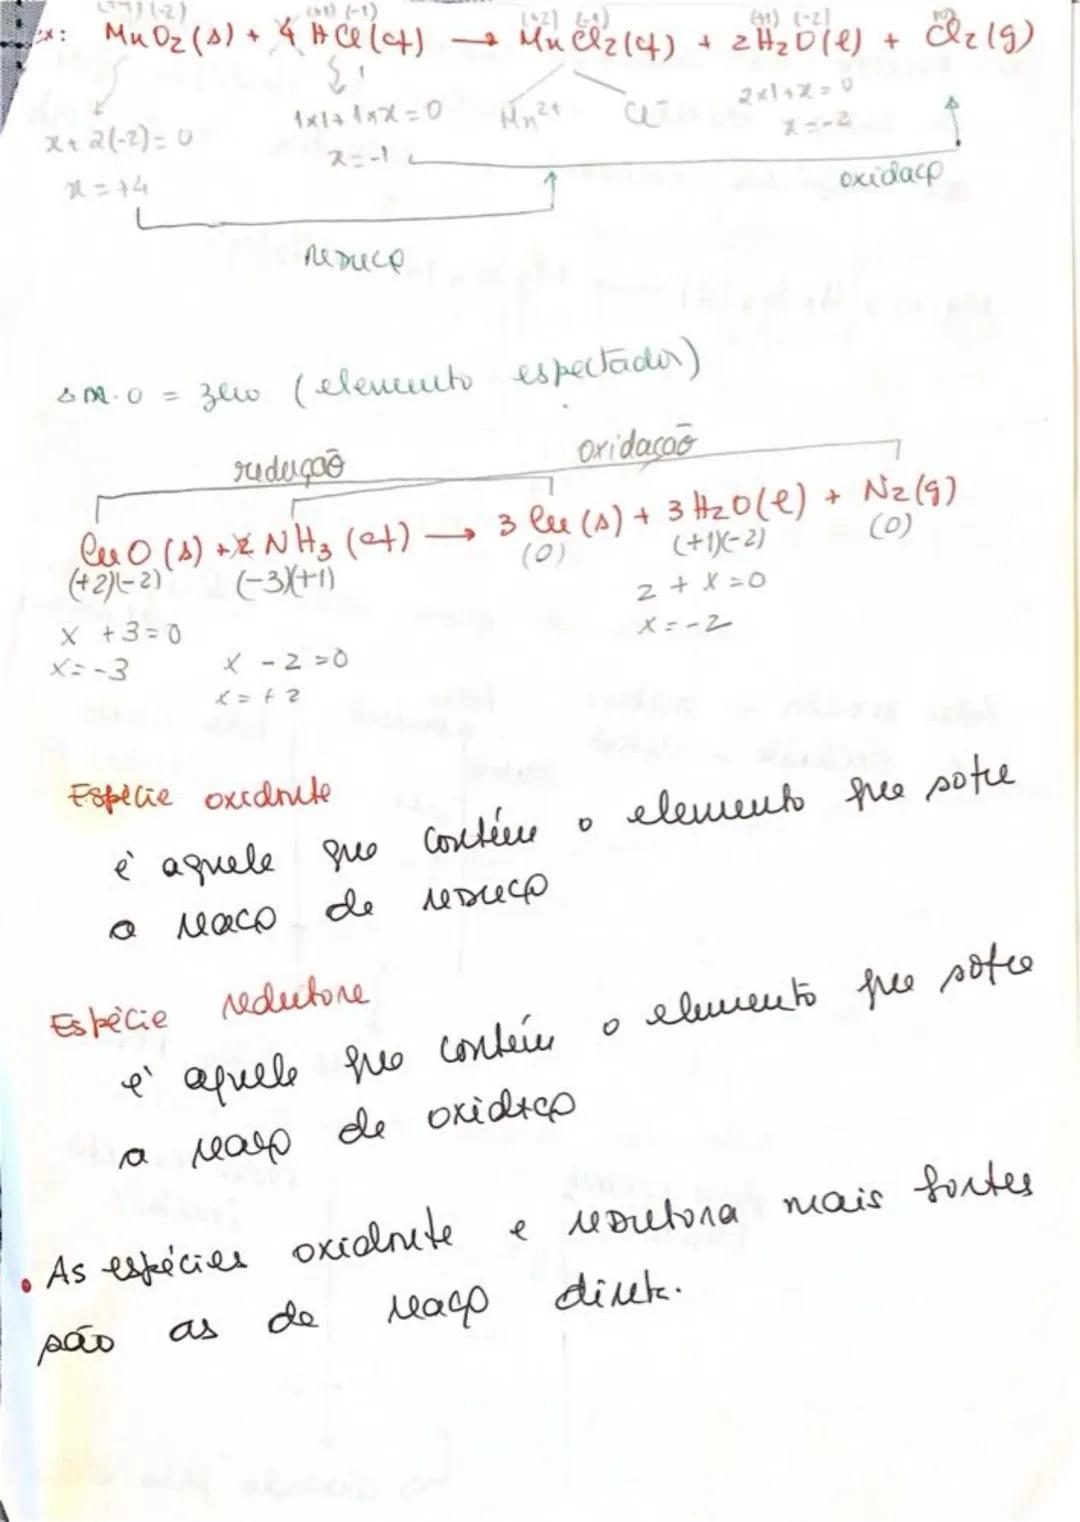 (+4)(-2) (+1) (-1) (+2) (-1) (+1) (-2) (0)
Ex: MnO2 (s) + 4 HCl (cf) → MnCl2 (cf) + 2H2O(l) + Cl2 (g)
x + 2(-2) = 0 1x1 + 1xx = 0 Mn2+ Cl- 2x1+x = 0
x = +4 x = -1 x = -2
oxidaçº
reduçº
Δ n.o = zero (elemento espectador)
redução oxidação
CuO (s) + 2 NH3 (cf) → 3 Cu (s) + 3 H2O(l) + N2 (g)
(+2)(-2) (-3)(+1) (0) (+1)(-2) (0)
x + 3 = 0 2 + x = 0
x = -3 x - 2 = 0 x = -2
x = + 2
Espécie oxidante
é aquele que contém o elemento que sofre
a reaçº de reduçº
Espécie redutora
é aquele que contém o elemento que sofre
a reaçº de oxidaçº
• As espécies oxidante e redutora mais fortes
são as de reaçº direta.